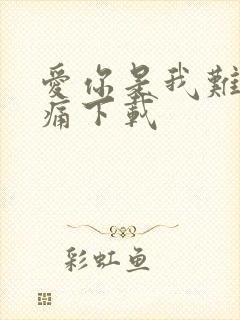 愛你是我難
痛下載
彩虹鱼